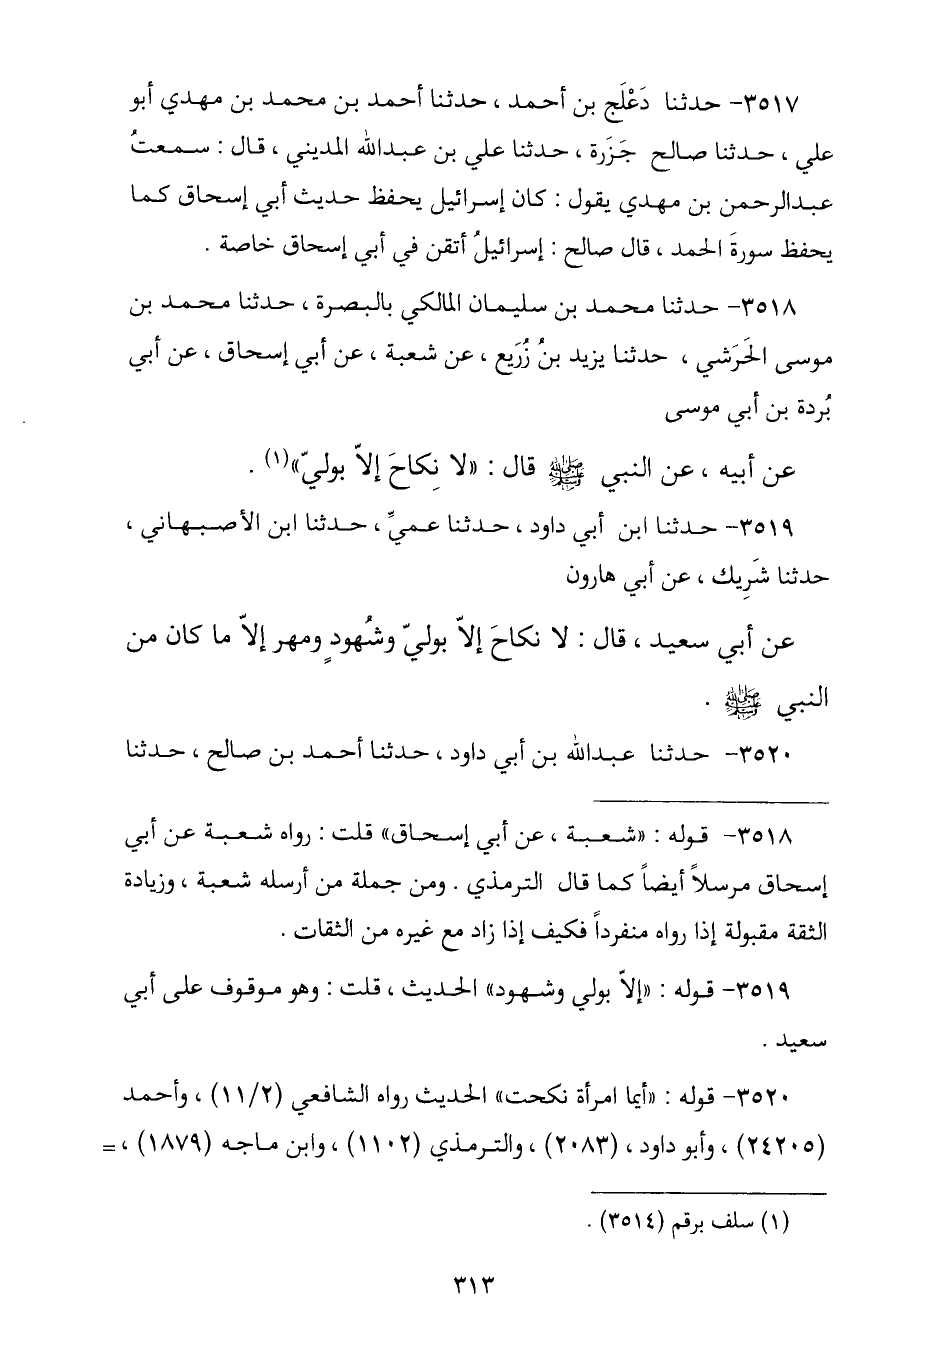 ٣٥١٧- حدثنا دَعْلَج بن أحمد ، حدثنا أحمد بن محمد بن مهدي أبو
علي ، حدثنا صالح جَزَرة ، حدثنا علي بن عبدالله المديني ، قال : سمعتُ
عبدالرحمن بن مهدي يقول : كان إسرائيل يحفظ حديث أبي إسحاق كما
يحفظ سورةَ الحمد ، قال صالح : إسرائيلُ أتقن في أبي إسحاق خاصة .
٣٥١٨- حدثنا محمد بن سليمان المالكي بالبصرة ، حدثنا محمد بن
موسى الحَرَشي ، حدثنا يزيد بنُ زُرَيع ، عن شعبة ، عن أبي إسحاق ، عن أبي
بُردة بن أبي موسى
عن أبيه ، عن النبي ﷺ قال : «لا نِكاحَ إلاّ بوليّ»(١) .
٣٥١٩- حدثنا ابن أبي داود ، حدثنا عميِّ ، حدثنا ابن الأصبهاني ،
حدثنا شَرِيك ، عن أبي هارون
عن أبي سعيد ، قال : لا نكاحَ إلاّ بوليّ وشُهودٍ ومهر إلاّ ما كان من
النبي ﷺ .
٣٥٢٠- حدثنا عبدالله بن أبي داود ، حدثنا أحمد بن صالح ، حدثنا
٣٥١٨- قوله : «شعبة ، عن أبي إسحاق» قلت : رواه شعبة عن أبي
إسحاق مرسلاً أيضاً كما قال الترمذي . ومن جملة من أرسله شعبة ، وزيادة
الثقة مقبولة إذا رواه منفرداً فكيف إذا زاد مع غيره من الثقات .
٣٥١٩- قوله : «إلاّ بولي وشهود» الحديث ، قلت : وهو موقوف على أبي
سعيد .
٣٥٢٠- قوله : «أيما امرأة نكحت» الحديث رواه الشافعي (١١/٢) ، وأحمد
(٢٤٢٠٥) ، وأبو داود ، (٢٠٨٣) ، والترمذي (١١٠٢) ، وابن ماجه (١٨٧٩) ، =
(١) سلف برقم (٣٥١٤) .
٣١٣